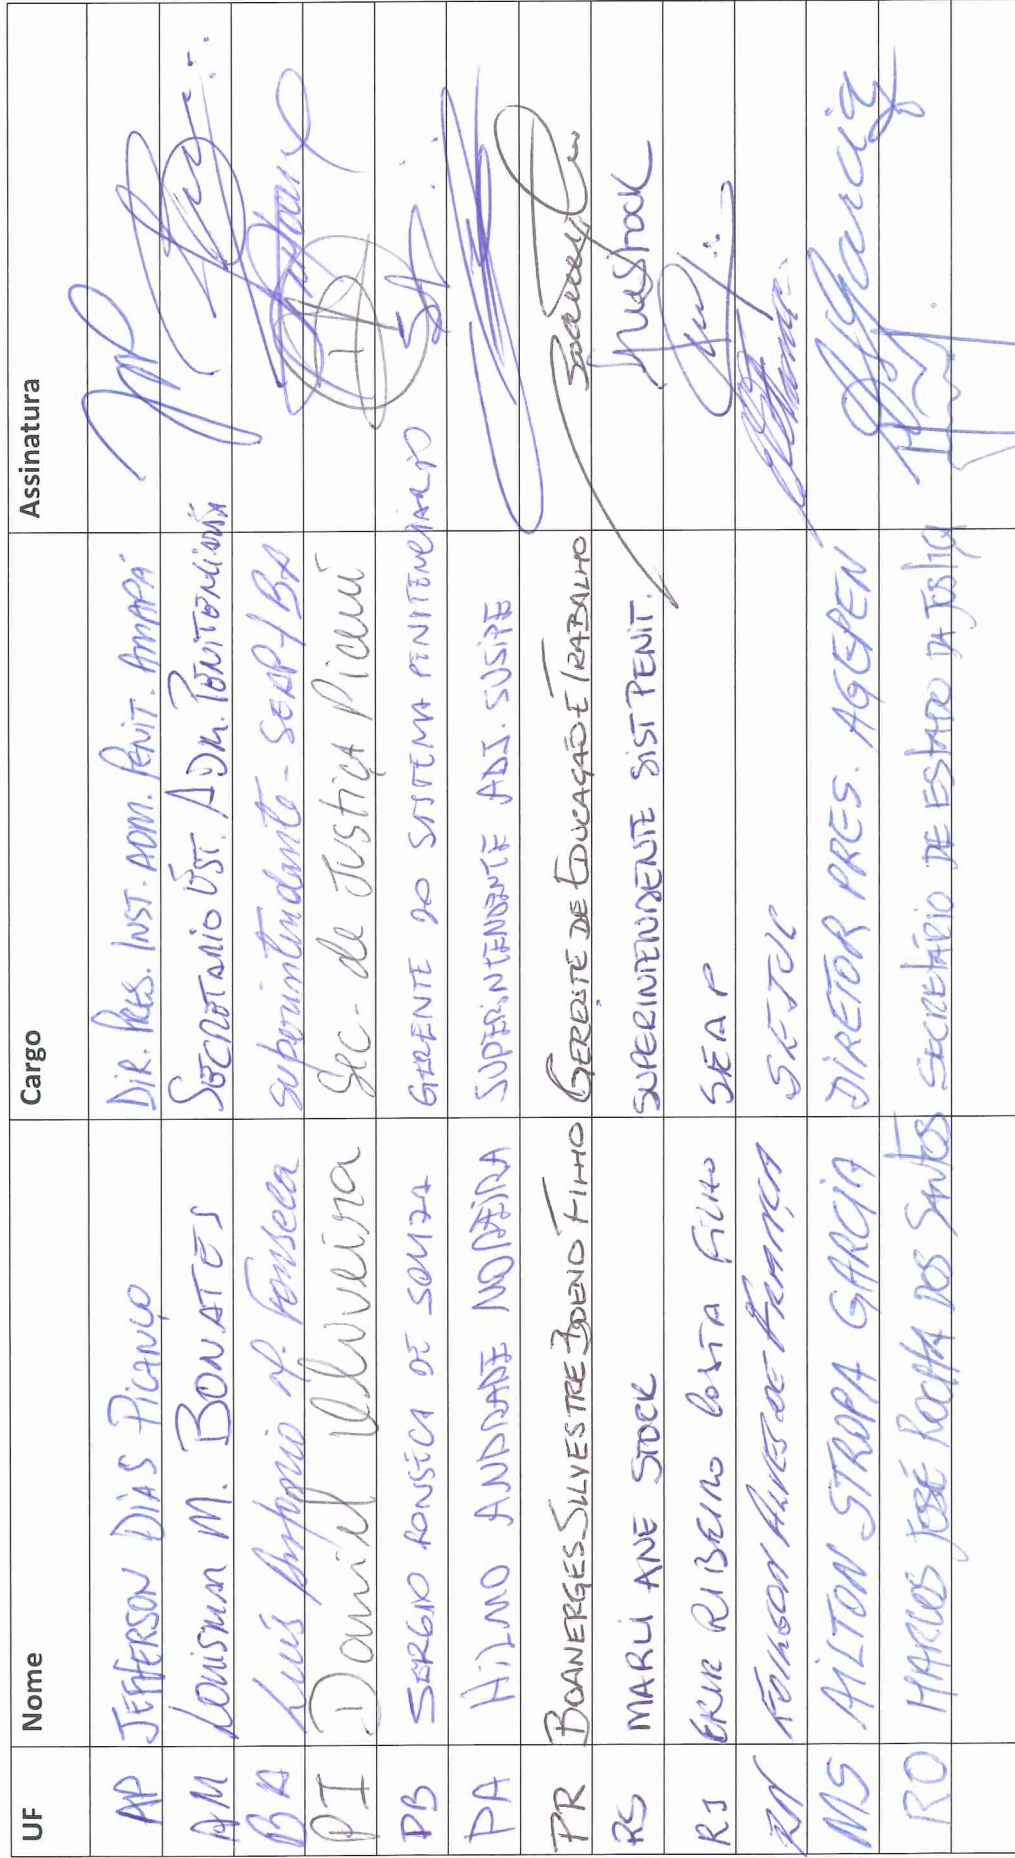 UF Nome Cargo Assinatura
AP JEFFERSON DIAS PICANÇO DIR. PRES. INST. ADM. PENIT. AMAPÁ
AM Lourismar M. BONATES SECRETARIO EST. ADM. PENITENCIÁRIA
BA Luís Antonio N. Fonseca Superintendente - SEAP/BA
PI Daniel Oliveira Sec. de Justiça Piauí
PB SERGIO FONSECA DE SOUZA GERENTE DO SISTEMA PENITENCIARIO
PA HILMO ANDRADE MOREIRA SUPERINTENDENTE ADJ. SUSIPE
PR BOANERGES SILVESTRE BOENO FILHO GERENTE DE EDUCAÇÃO E TRABALHO
RS MARLI ANE STOCK SUPERINTENDENTE SIST PENIT. Stock
RJ ERIR RIBEIRO COSTA FILHO SEAP
RN ALVES DE FRANÇA SEJUC
MS AILTON STROPA GARCIA DIRETOR PRES. AGEPEN Garcia
RO MARCOS JOSÉ ROCHA DOS SANTOS SECRETÁRIO DE ESTADO DA JUSTIÇA